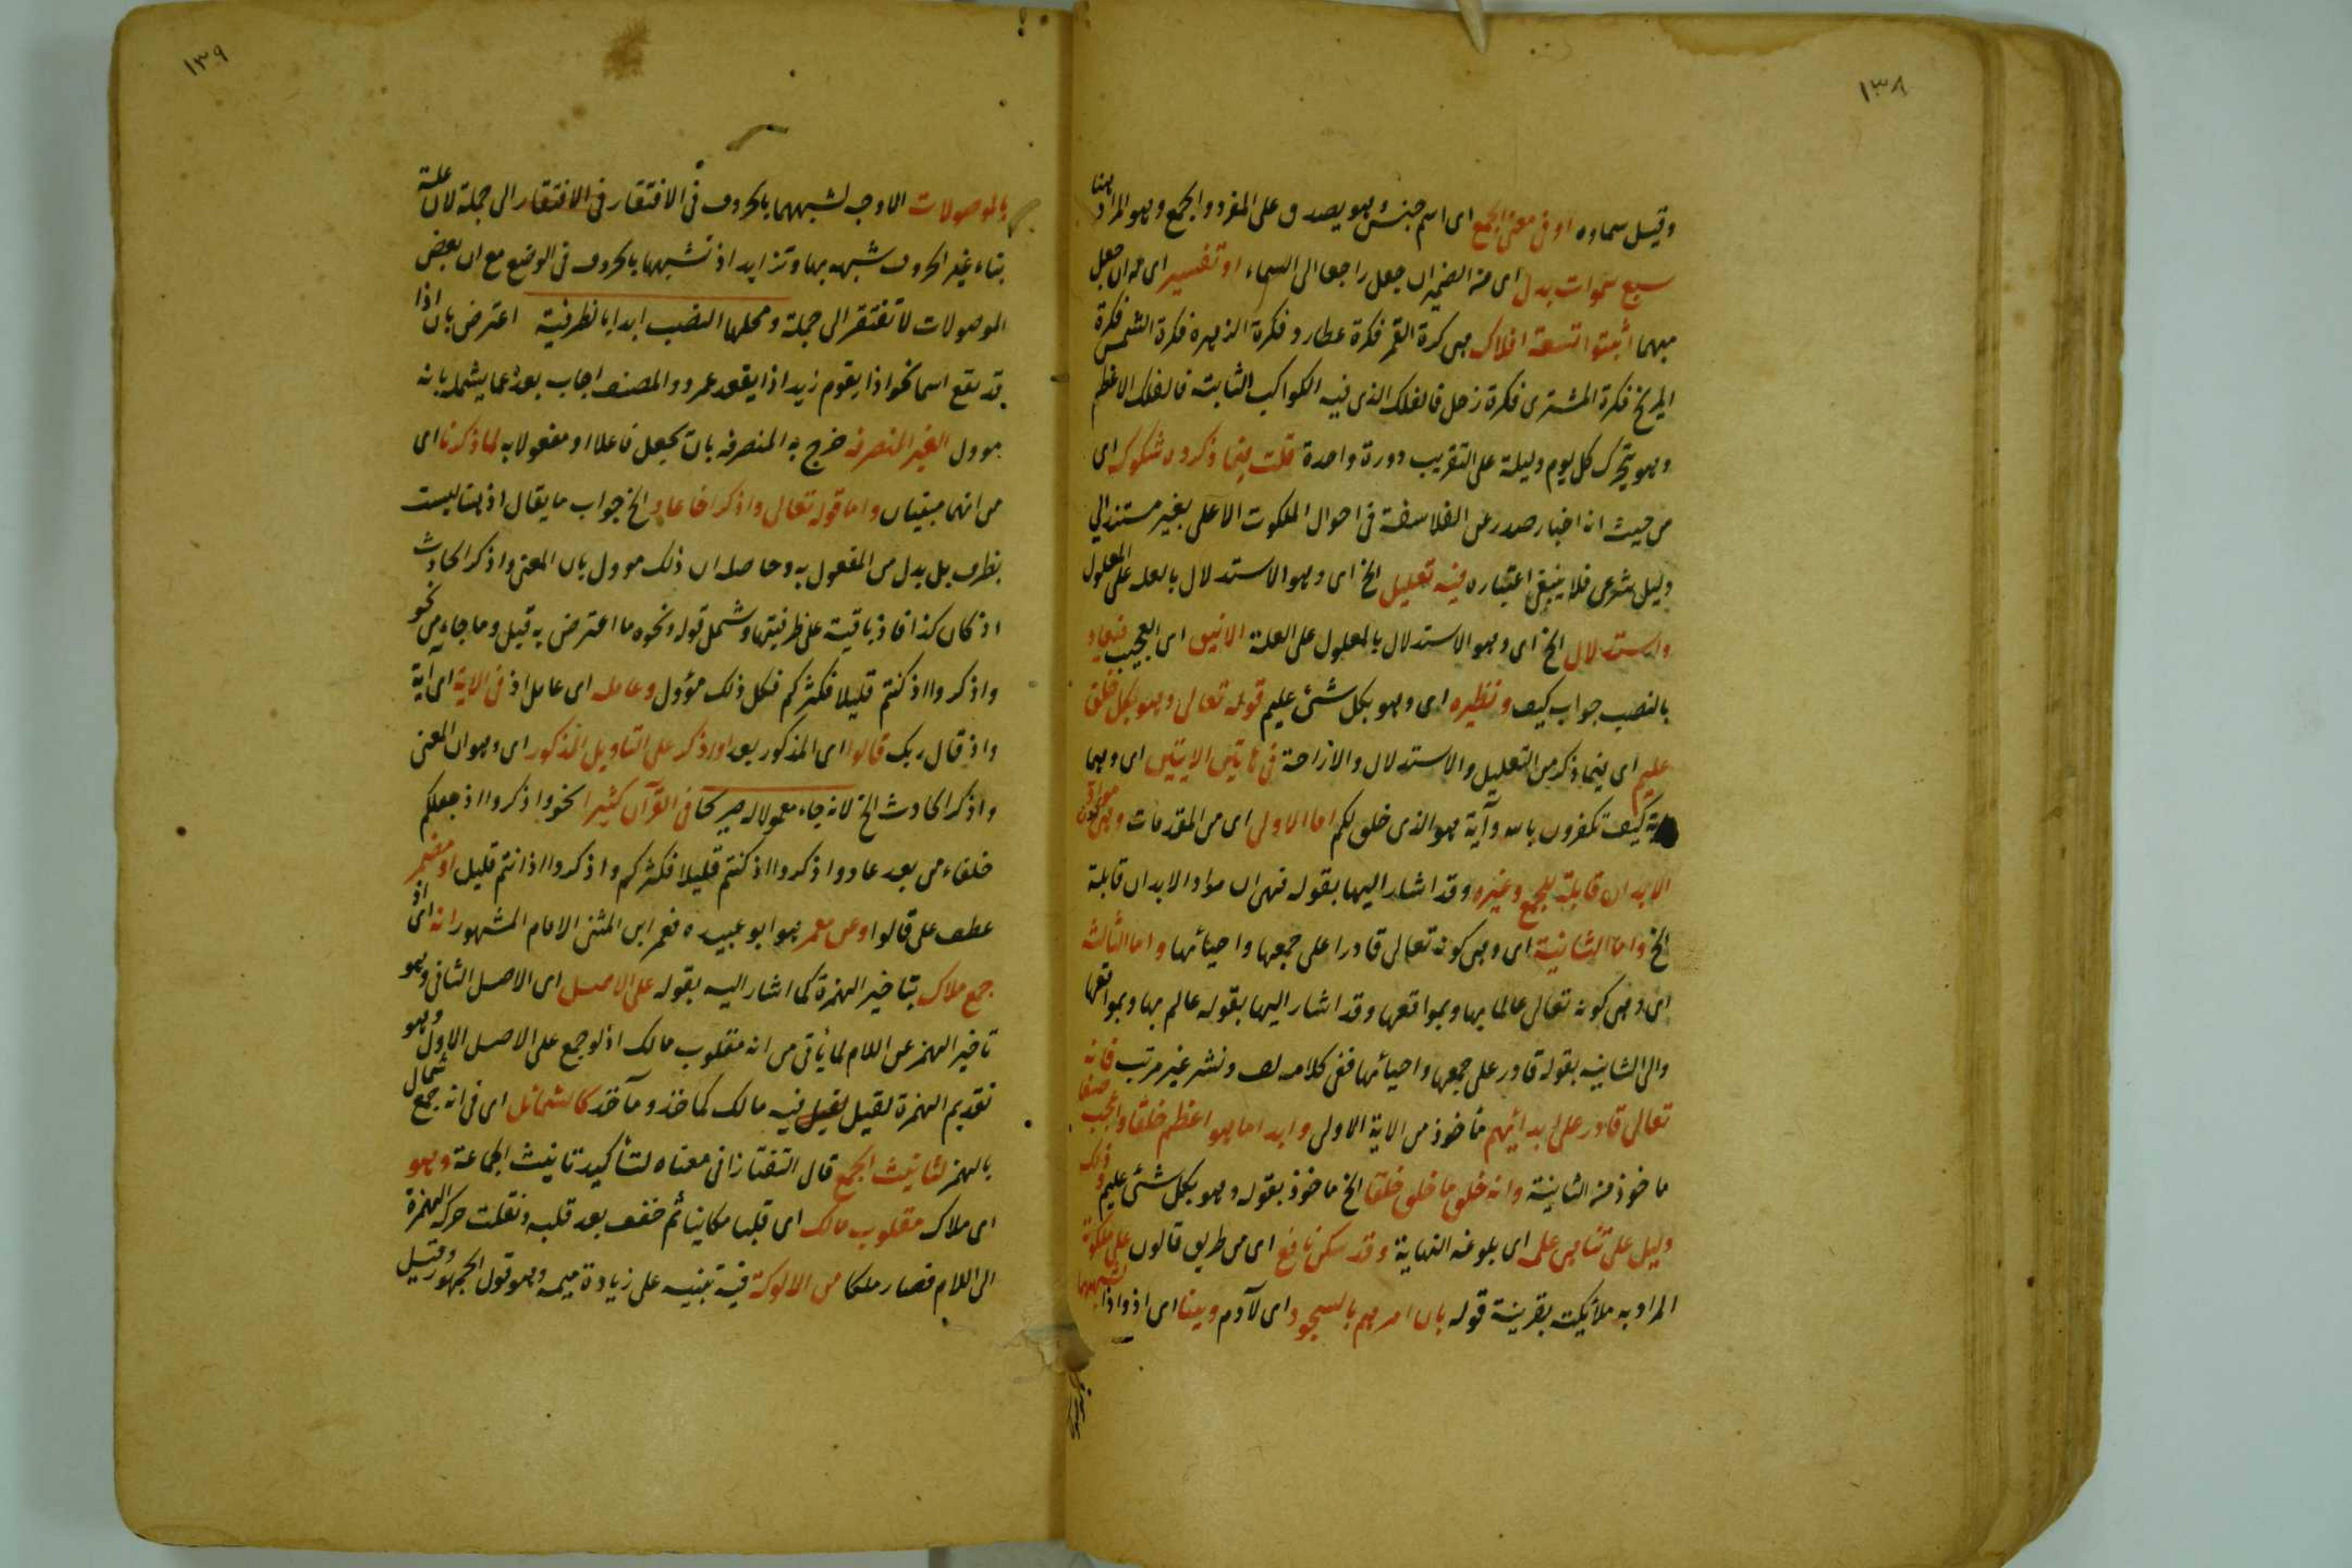 ١٣٨
وقيل سماوه او فى معنى الجمع اى اسم جنس وهو يصدق على المفرد والجمع وهو المراد هنا
سبع سموات بدل اى من الضمير ان جعل راجعا الى السماء او تفسير اى له ان جعل
مبهما اثبتوا تسعة افلاك هى كرة القمر فكرة عطارد فكرة الزهره فكرة الشمس فكرة
المريخ فكرة المشترى فكرة زحل فالفلك الذى فيه الكواكب الثابتة فالفلك الاعظم
وهو يتحرك كل يوم وليلة على التقريب دورة واحدة قلت فيما ذكروه شكوك اى
من حيث انه اخبار صدر عن الفلاسفة فى احوال الملكوت الاعلى بغير مستند الى
دليل شرعى فلا ينبغى اعتباره فيه تعليل الخ اى وهو الاستدلال بالعلة على المعلول
واستدلال الخ اى وهو الاستدلال بالمعلول على العلة الانيق اى العجيب فتعاد
بالنصب جواب كيف ونظيره اى وهو بكل شئ عليم قوله تعالى وهو بكل خلق
عليم اى فيما ذكر من التعليل والاستدلال والازاحة فى هاتين الايتين اى وهما
اية كيف تكفرون بالله وآية هو الذى خلق لكم اما الاولى اى من المقدمات وهى كون مواد
الابدان قابلة للجمع وغيره وقد اشار اليها بقوله فهى ان مواد الابدان قابلة
الخ واما الثانية اى وهى كونه تعالى قادرا على جمعها واحيائها واما الثالثة
اى وهى كونه تعالى عالما بها وبمواقعها وقد اشار اليها بقوله عالم بها وبمواقعها
والى الثانيه بقوله قادر على جمعها واحيائها ففى كلامه لف ونشر غير مرتب فانه
تعالى قادر على ابدائهم مأخوذ من الاية الاولى وابدا ما هو اعظم خلقا واعجب صنعا
ماخوذ من الثانية وانه خلق ما خلق خلقا الخ ماخوذ بقوله وهو بكل شئ عليم وذلك
دليل على تناهى علمه اى بلوغه النهاية وقد سكن نافع اى من طريق قالون على ملكوته
المراد به ملائكته بقرينة قوله بان امرهم بالسجود اى لآدم وبينا اى اذ واذا لشبههما
١٣٩
بالموصولات الاوجه لشبههما بالحروف فى الافتقار فى الافتقار الى جملة لان علة
بناء غير الحروف شبهه بها وتزايد اذ تشبهها بالحروف فى الوضع مع ان بعض
الموصولات لا تفتقر الى جملة ومحلها النصب ابدا بالظرفية اعترض بان اذا
قد تقع اسما نحو اذا يقوم زيد اذا يقعد عمرو والمصنف اجاب بعد عما يشمله بانه
موول الغير المنصرفه خرج به المنصرفه بان تجعل فاعلا او مفعولا به لما ذكرنا اى
من انهما مبنيان واما قوله تعالى واذكر اخا عاد الخ جواب ما يقال اذ هنا ليست
بظرف بل بدل من المفعول به وحاصله ان ذلك موول بان المعنى واذكر الحادث
اذ كان كذا فاذ باقية على ظرفيتها وشمل قوله ونحوه ما اعترض به قيل وما جاء من نحو
واذكروا اذ كنتم قليلا فكثركم فكل ذلك مؤول وعامله اى عامل اذ فى الاية اى آية
واذ قال ربك قالوا اى المذكور بعد او اذكر على التاويل المذكور اى وهو ان المعنى
واذكر الحادث الخ لانه جاء معمولا له صريحا فى القرآن كثيرا نحو واذكروا اذ جعلكم
خلفاء من بعد عاد واذكروا اذ كنتم قليلا فكثركم واذكروا اذ انتم قليل او مضمر
عطف على قالوا وعن معمر هو ابو عبيده فعمر ابن المثنى الامام المشهور انه اى اذ
جمع ملاك بتاخير الهمزة كما اشار اليه بقوله على الاصل اى الاصل الثانى وهو
تاخير الهمز عن اللام لما يأتى من انه مقلوب مالك اذ لو جمع على الاصل الاول وهو
تقديم الهمزة لقيل لقيل فيه مالك كماخذ ومآخذ كالشمائل اى فى انه جمع شمأل
بالهمز لتانيث الجمع قال التفتازانى معناه لتأكيد تانيث الجماعة وهو
اى ملاك مقلوب مالك اى قلبا مكانيا ثم خفف بعد قلبه ونقلت حركه الهمزة
الى اللام فصار ملكا من الالوكة فيه تنبيه على زيادة ميمه وهو قول الجمهور وقيل